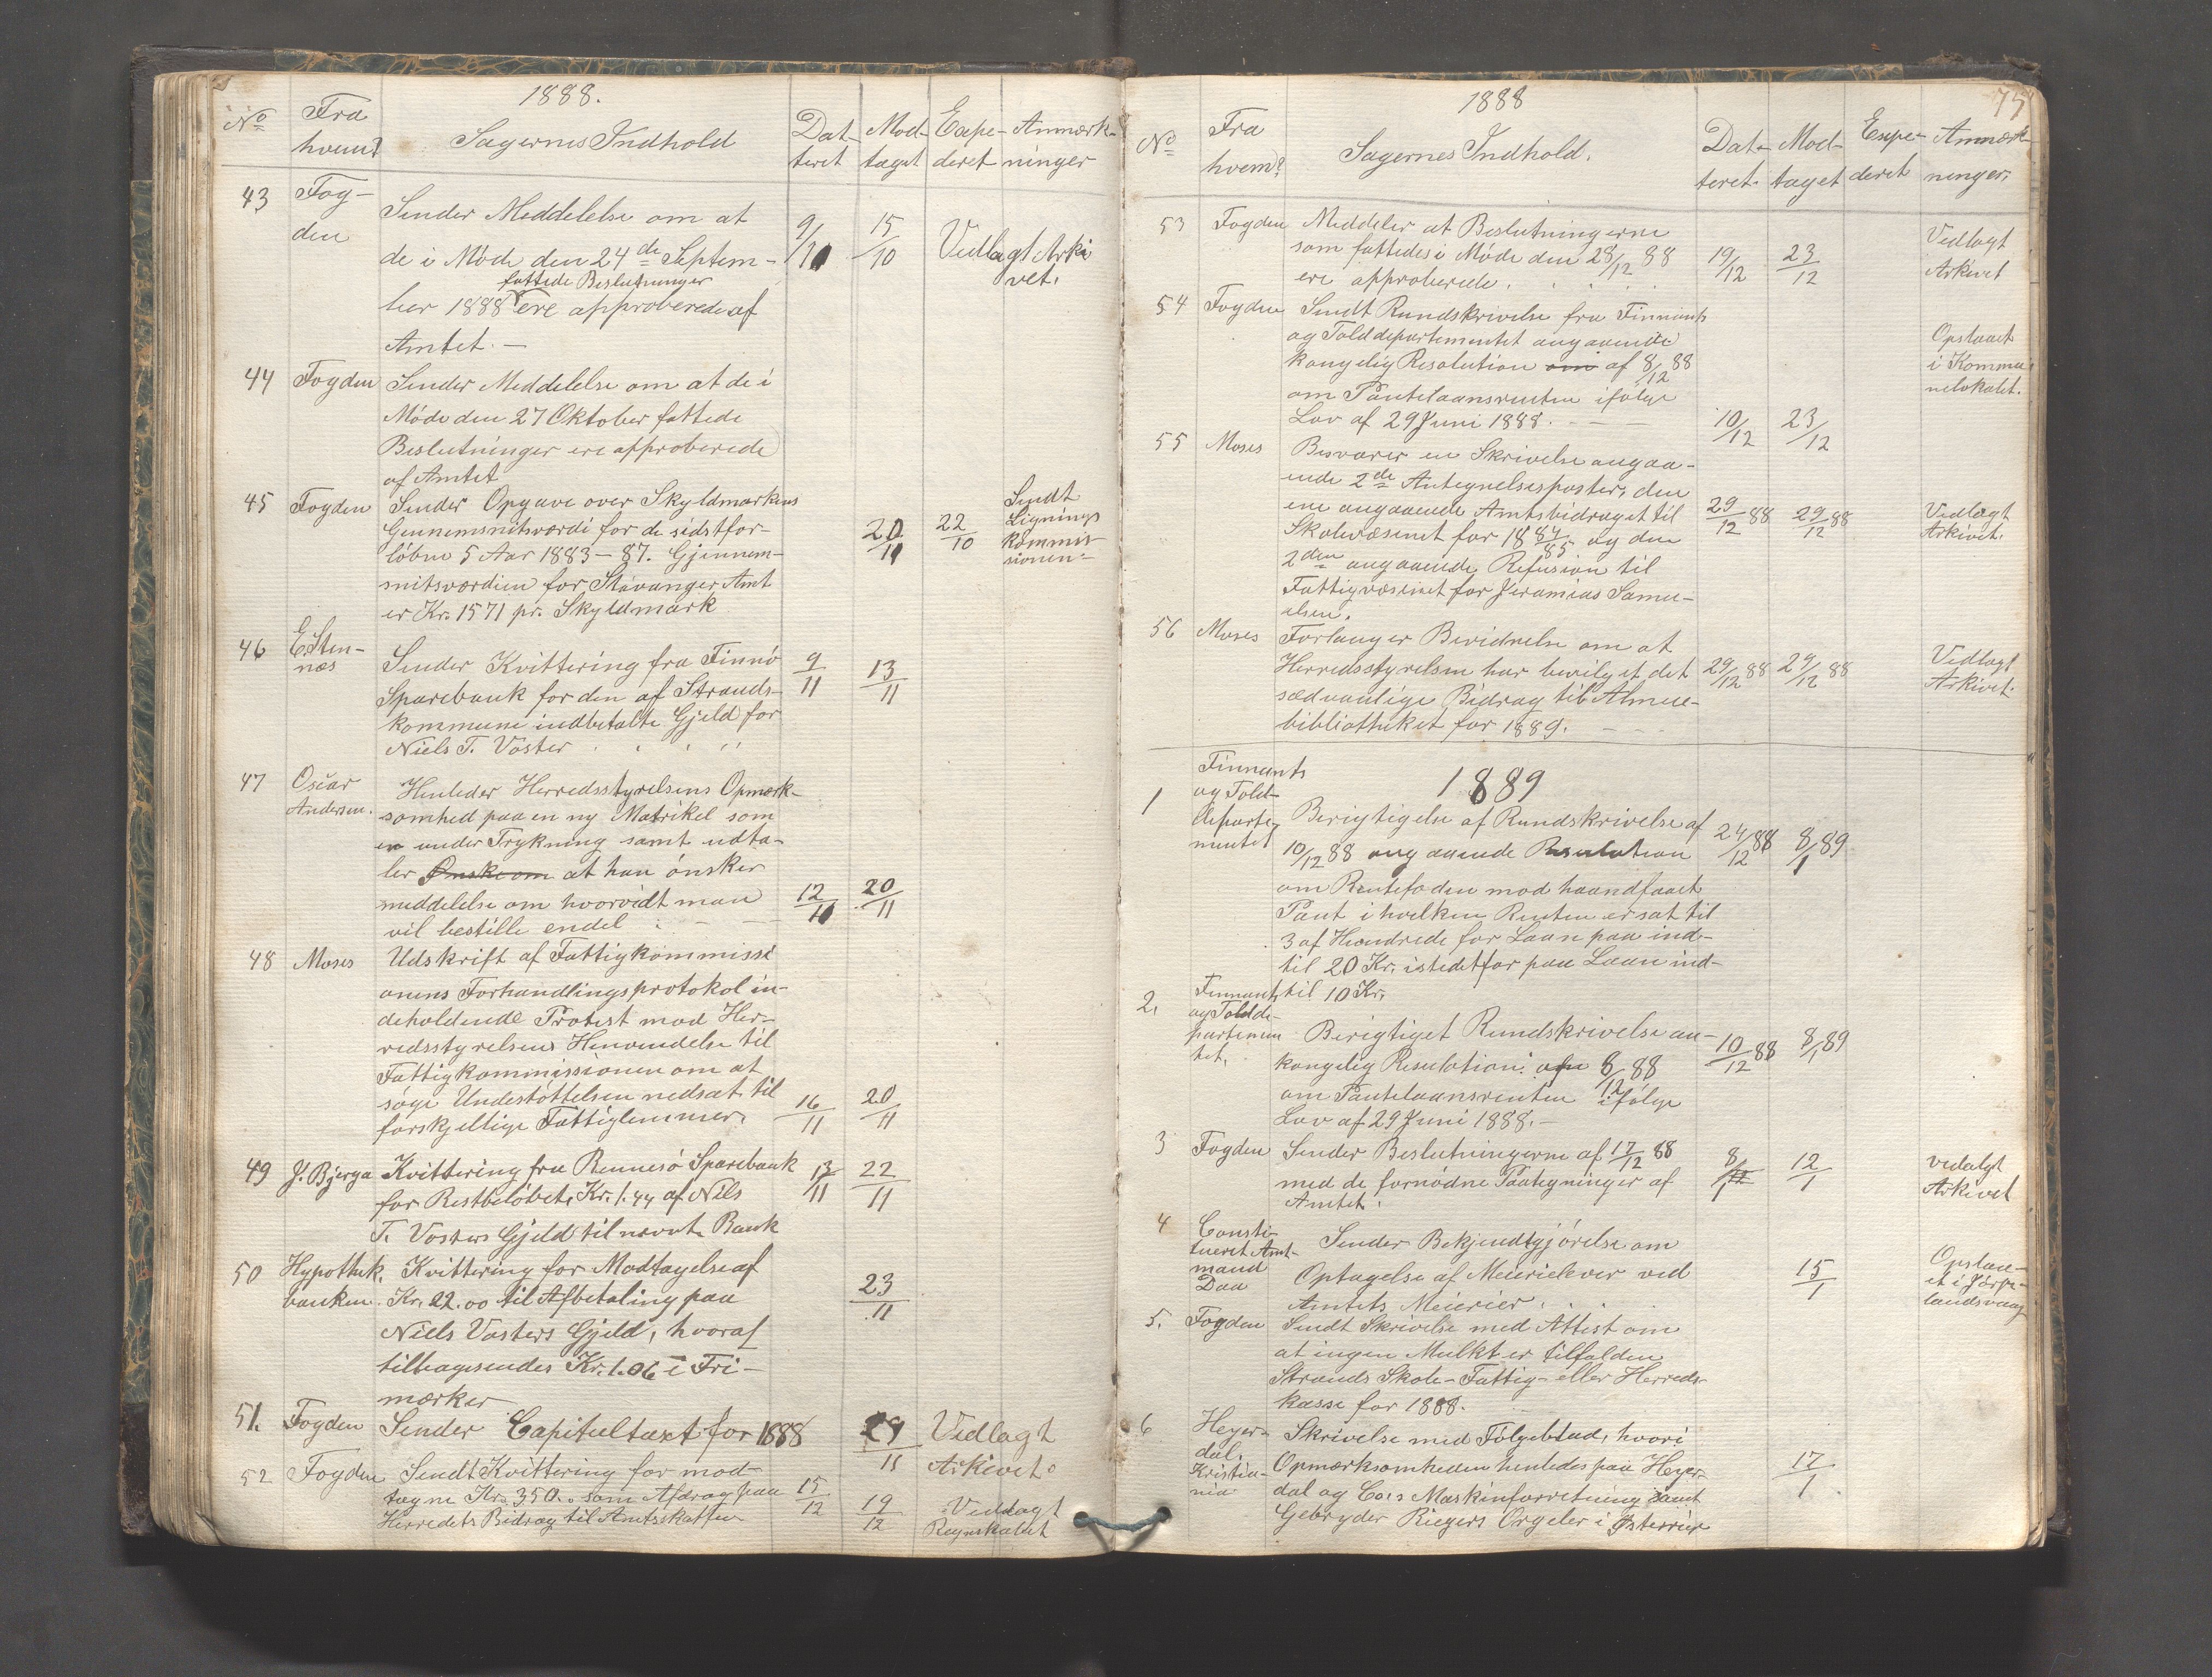 1888.
No Fra hvem? Sagernes Indhold Dat-teret Mod-taget Expe-deret Anmærk-ninger
43 Fog-den Sender Meddelelse om at
de i Møde den 24de Septem- 9/10 15/10 Vedlagt Arki
fattede Beslutninger vet.
ber 1888 ere approberede af
Amtet. —
44 Fogden Sender Meddelelse om at de i
Møde den 27 Oktober fattede
Beslutninger ere approberede
af Amtet
45 Fogden Sender Opgave over Skyldmarkens Sendt
Gennemsnitsværdi for de sidstfor- 20/11 22/10 Lignings
løbne 5 Aar 1883-87. Gjennem- kommis
snitsværdien for Stavanger Amt sionen
er Kr. 1571 pr. Skyldmark
46 E. Sten-næs Sender Kvittering fra Finnø 9/11 13/11
Sparebank for den af Strands-
kommune indbetalte Gjeld for
Niels T. Voster
47 Oscar Andersen. Henleder Herredsstyrelsens Opmærk-
somhed paa en ny Matrikel som
er under Trykning samt udta-
ler Ønske om at han ønsker
meddelelse om hvorvidt man 12/10 20/11
vil bestille endel
48 Moses Udskrift af Fattigkommissi
onens Forhandlingsprotokol in-
deholdende Protest mod Her-
redsstyrelsens Henvendelse til
Fattigkommissionen om at
søge Understøttelsen nedsat til
forskjellige Fattiglemmer. 16/11 20/11
49 J. Bjerga Kvittering fra Rennesø Sparebank 13/11 22/11
for Restbeløbet, Kr. 1.44 af Nils
T. Vosters Gjeld til nævnte Bank
50 Hypothek. banken. Kvittering for Modtagelse af
Kr. 22.00 til Afbetaling paa 23/11
Niels Vosters Gjeld, hvoraf
tilbagesendes Kr. 1.06 i Fri-
mærker
51. Fogden Sender Capiteltaxt for 1888 29/11 Vedlagt
Arkivet.
52 Fogden Sendt Kvittering for mod-
tagne Kr. 350. som Afdrag paa 15/12 19/12 Vedlagt
Herredets Bidrag til Amtsskatten Regnskabet
75
1888
No Fra hvem? Sagernes Indhold. Dat-teret Mod-taget Expe-deret Anmærk-ninger.
53 Fogden Meddeler at Beslutningerne Vedlagt
som fattedes i Møde den 28/12 88 19/12 23/12 Arkivet
ere approberede.
54 Fogden Sendt Rundskrivelse fra Finnants
og Tolddepartementet angaaende Opslaaet
kongelig Resolution om af 8/12 88 i Kommu
om Pantelaansrenten ifølge nelokalet.
Lov af 29 Juni 1888. 10/12 23/12
55 Moses Besvarer en Skrivelse angaa-
ende 2de Antegnelsesposter, den
ene angaaende Amtsbidraget til 29/12 88 29/12 88 Vedlagt
Skolevæsenet for 1884/85 og den Arkivet.
2den angaaende Refusion til
Fattigvæsenet for Jeramias Samu-
elsen.
56 Moses Forlanger Bevidnelse om at
Herredsstyrelsen har bevilget det 29/12 88 29/12 88 Vedlagt
sædvanlige Bidrag til Almue- Arkivet.
bibliotheket for 1889.
1889
1 Finnants og Told-departe-mentet Berigtigelse af Rundskrivelse af 24/12 88 8/1 89
10/12 88 angaaende Resolution
om Rentefoden mod haandfaaet
Pant i hvilken Renten er sat til
3 af Hundrede for Laan paa ind-
til 20 Kr. istedetfor paa Laan ind-
til 10 Kr.
2. Finnants og Toldde-partemen tet. Berigtiget Rundskrivelse an- 10/12 88 8/1 89
kongelig Resolution af 8/12 88
om Pantelaansrenten ifølge
Lov af 29 Juni 1888. —
3 Fogden Sender Beslutningerne af 17/12 88 8/1 12/1 vedlagt
med de fornødne Paategninger af Arkivet
Amtet.
4 Consti-tueret Amt-mand Daa Sender Bekjendtgjørelse om
Optagelse af Meierielever ved 15/1 Opslaa-et i Jørpe-landsvaag
Amtets Meierier.
5. Fogden Sendt Skrivelse med Attest om
at ingen Mulkt er tilfalden
Strands Skole- Fattig- eller Herreds-
kasse for 1888.
6 Heyer-dal, Kristia-nia Skrivelse med Følgeblad, hvori
Opmærksomheden henledes paa Heyer- 17/1
dal og Co.s Maskinforretning samt
Gebryder Riegers Orgeler i Østerrig